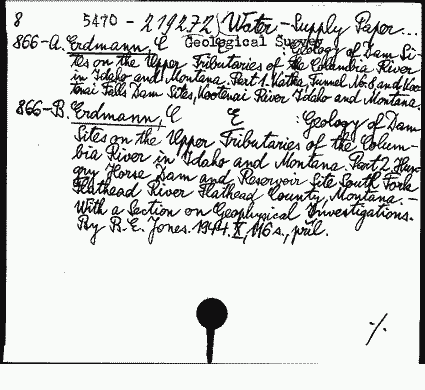 8 5470 - 219272 Water-Supply Paper...
Geological Survey
866-A. Erdmann, C E : Geology of Dam Si-
tes on the Upper Tributaries of the Columbia River
in Idaho and Montana. Part 1. Katka, Tunnel No. 8, and Koo-
tenai Falls Dam Sites, Kootenai River Idaho and Montana.
866-B. Erdmann, C E : Geology of Dam
Sites on the Upper Tributaries of the Colum-
bia River in Idaho and Montana. Part 2. Hun-
gry Horse Dam and Reservoir Site South Fork
Flathead River Flathead County, Montana. -
With a Section on Geophysical Investigations.
By R. E. Jones. 1944. X, 116 s., příl.
./.